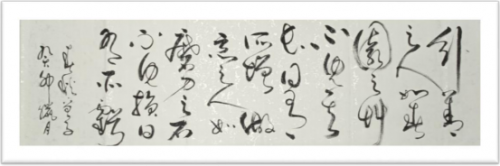 行善
之人如春
園之艸
不見其
長日有
所增做
惡之人如
磨刀之石
不見損日
有所虧
癸卯